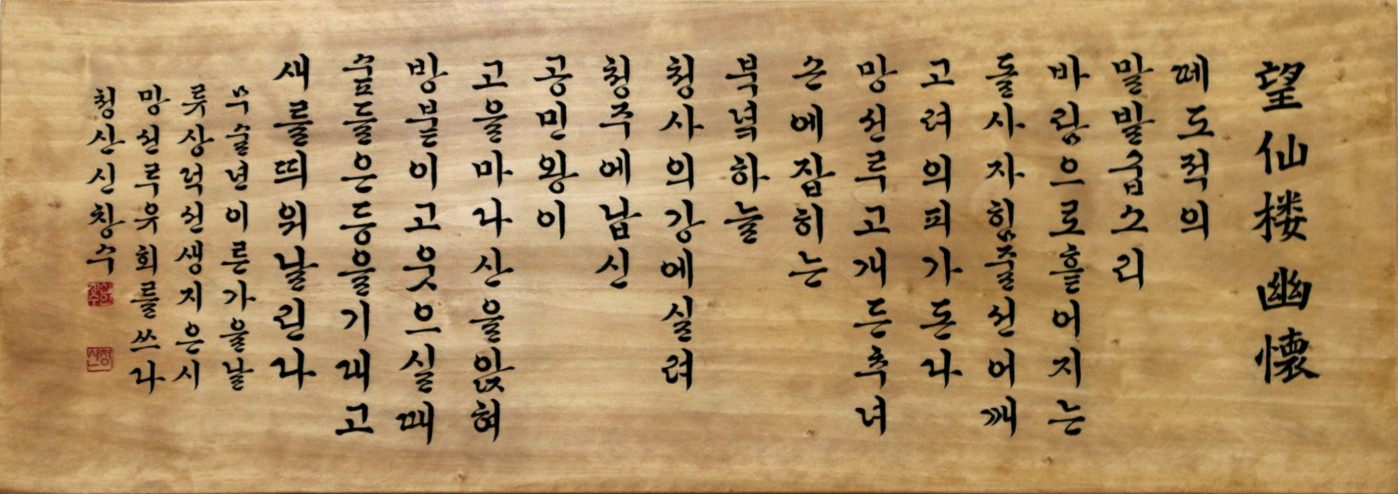 望仙楼幽懷
떼도적의
말발굽소리
바람으로흩어지는
돌사자힘줄선어깨
고려의피가돈다
망선루고개든추녀
손에잡히는
북녘하늘
청사의강에실려
청주에납신
공민왕이
고을마다산을앉혀
방붙이고웃으실때
숲들은등을기대고
새를띄워날린다
무술년이른가을날
류상덕선생지은시
망선루유회를쓰다
청산신창수